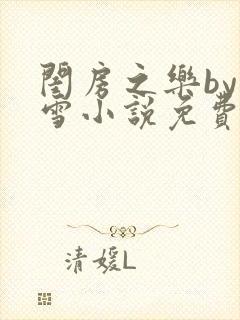 閨房之樂by
雪小説免費
清媛L